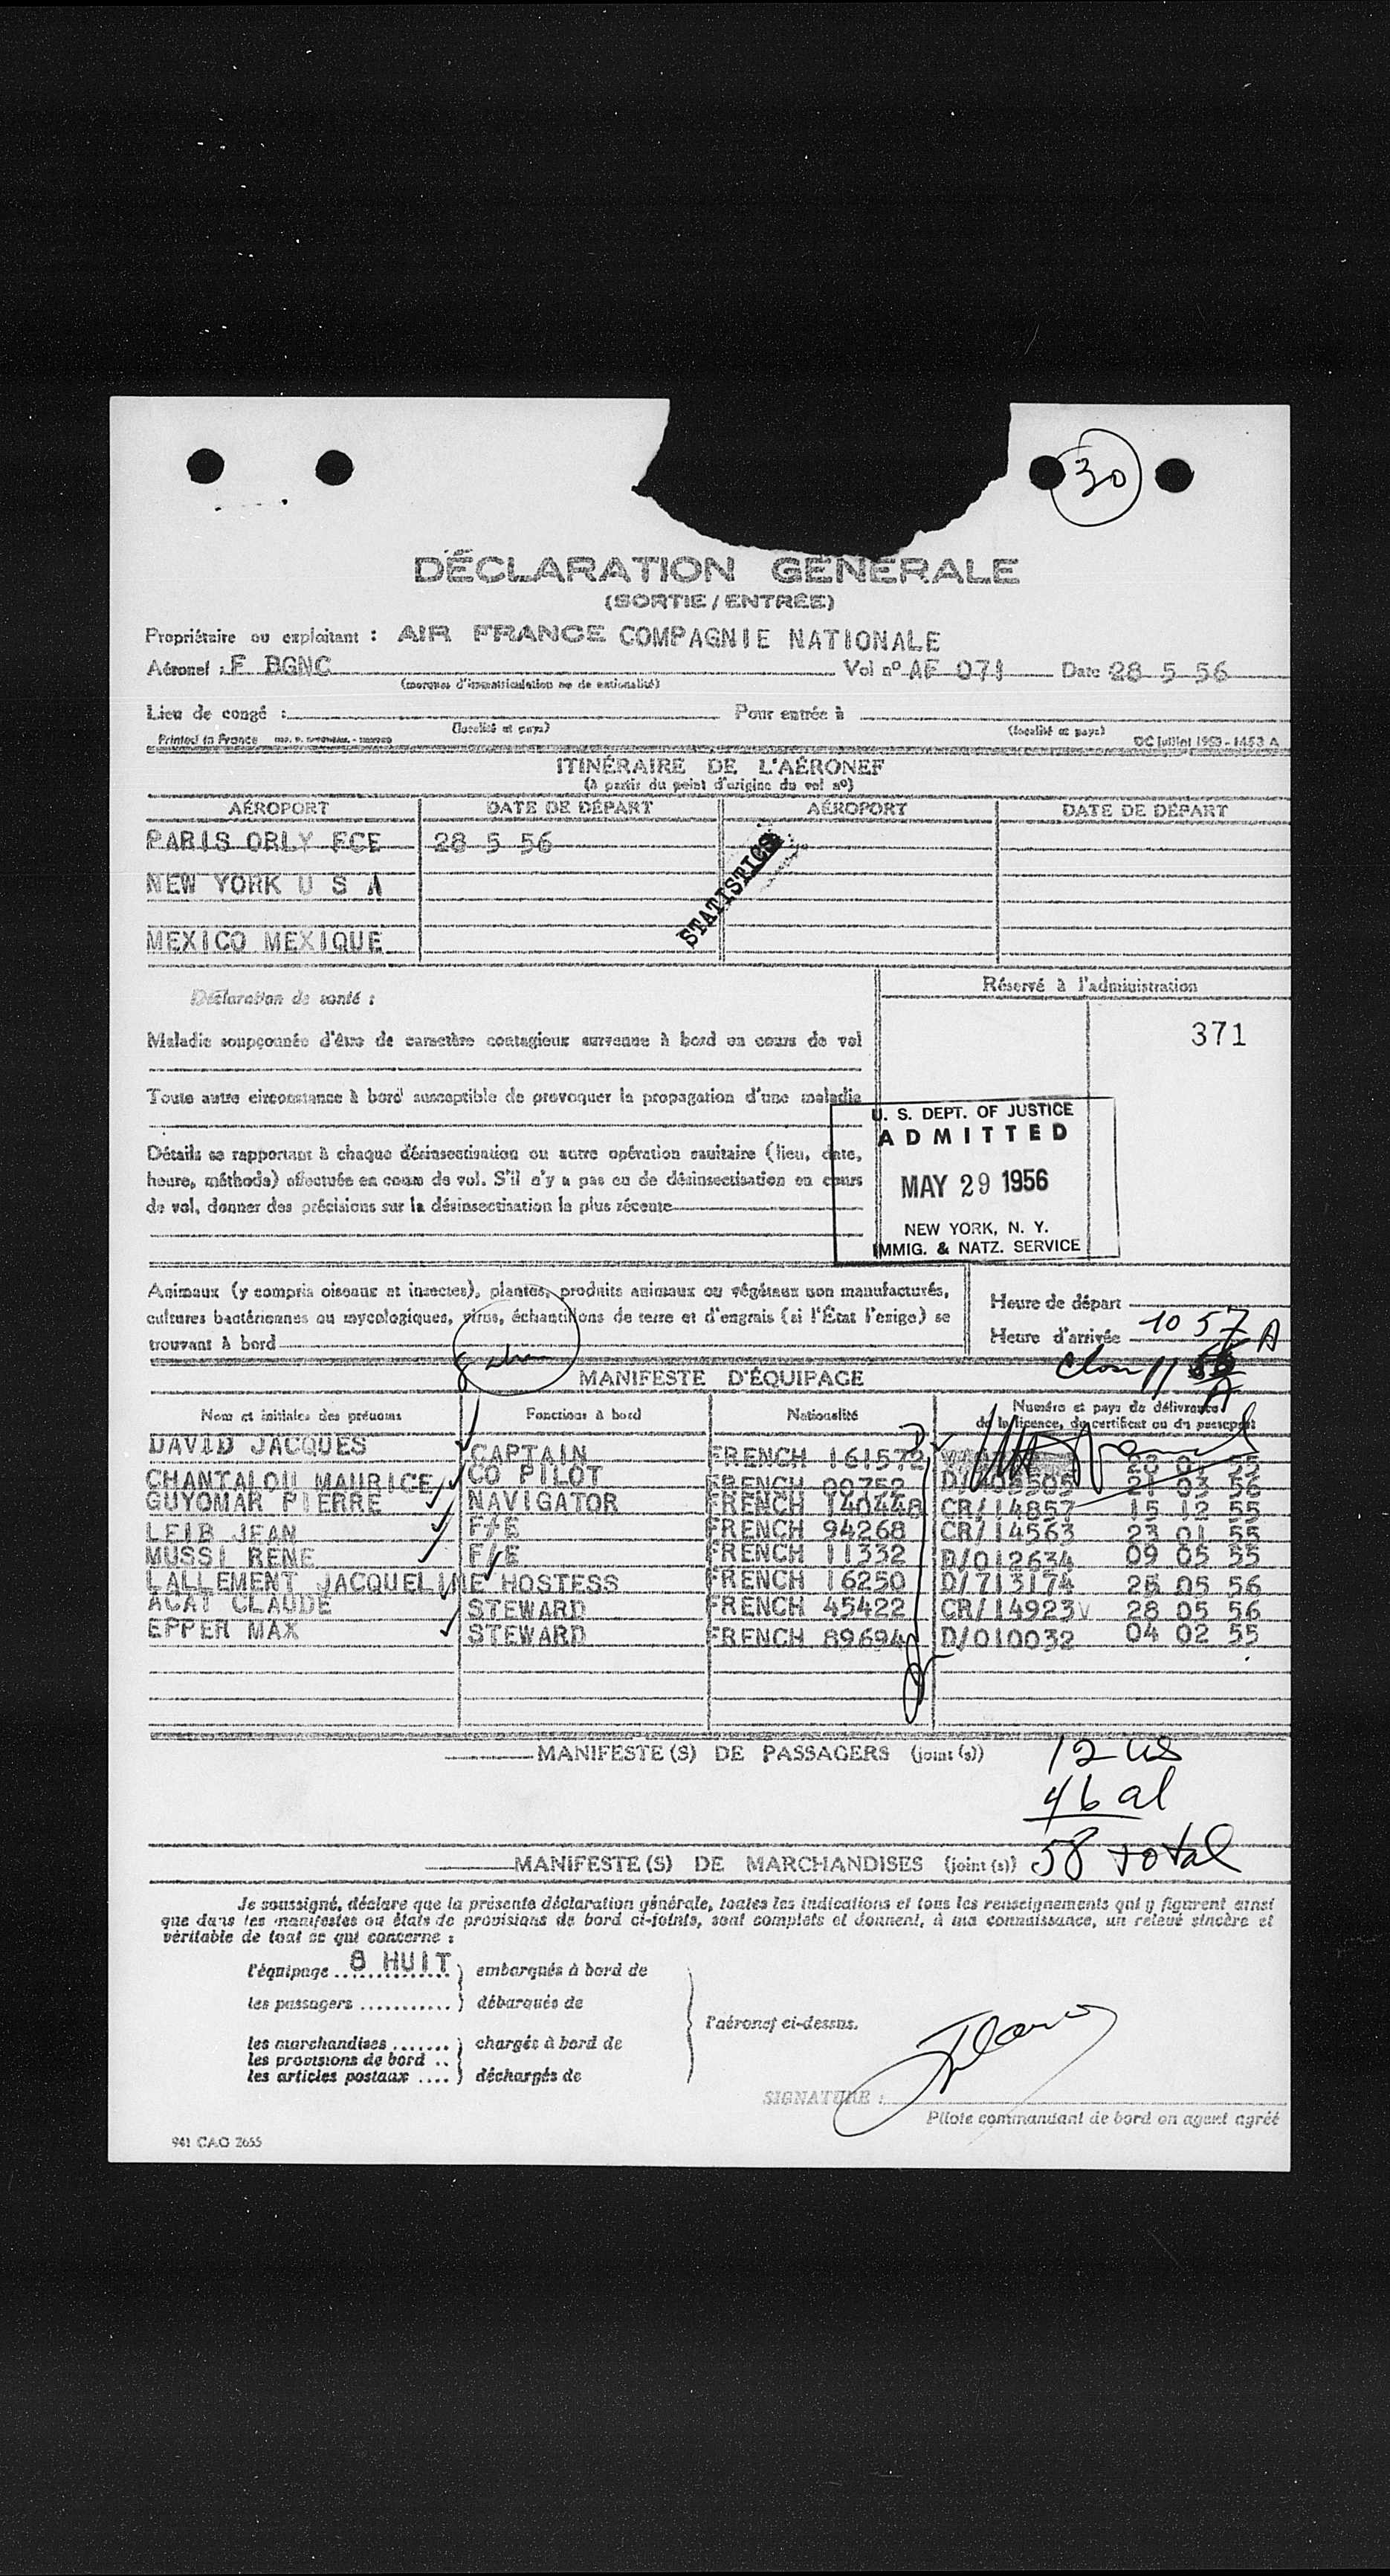 30
DÉCLARATION GÉNÉRALE
(SORTIE / ENTRÉE)
Propriétaire ou exploitant : AIR FRANCE COMPAGNIE NATIONALE
Aéronef : F BGNC Vol nº AF 071 Date 28 5 56
(marques d'immatriculation ou de nationalité)
Lieu de congé : Pour entrée à
(localité et pays) (localité et pays)
Printed in France OC Juillet 1953 - 1453 A
ITINÉRAIRE DE L'AÉRONEF
(à partir du point d'origine du vol nº)
AÉROPORT DATE DE DÉPART AÉROPORT DATE DE DÉPART
PARIS ORLY FCE 28 5 56
STATISTICS
NEW YORK U S A
MEXICO MEXIQUE
Déclaration de santé : Réservé à l'administration
371
Maladie soupçonnée d'être de caractère contagieux survenue à bord en cours de vol
Toute autre circonstance à bord susceptible de provoquer la propagation d'une maladie
U. S. DEPT. OF JUSTICE
ADMITTED
MAY 29 1956
NEW YORK, N. Y.
IMMIG. & NATZ. SERVICE
Détails se rapportant à chaque désinsectisation ou autre opération sanitaire (lieu, date,
heure, méthode) effectuée en cours de vol. S'il n'y a pas eu de désinsectisation en cours
de vol, donner des précisions sur la désinsectisation la plus récente
Animaux (y compris oiseaux et insectes), plantes, produits animaux ou végétaux non manufacturés,
cultures bactériennes ou mycologiques, virus, échantillons de terre et d'engrais (si l'État l'exige) se
trouvant à bord
Heure de départ
Heure d'arrivée 10 57 A
11
MANIFESTE D'ÉQUIPAGE
Nom et initiales des prénoms Fonctions à bord Nationalité Numéro et pays de délivrance
de la licence, du certificat ou du passeport
DAVID JACQUES CAPTAIN FRENCH 161572
CHANTALOU MAURICE CO PILOT FRENCH 00752 21 03 56
GUYOMAR PIERRE NAVIGATOR FRENCH 140448 CR/14857 15 12 55
LEIB JEAN F/E FRENCH 94268 CR/14563 23 01 55
MUSSI RENE F/E FRENCH 11332 D/012634 09 05 55
LALLEMENT JACQUELINE HOSTESS FRENCH 16250 D/713174 25 05 56
ACAT CLAUDE STEWARD FRENCH 45422 CR/14923 28 05 56
EPPER MAX STEWARD FRENCH 89694 D/010032 04 02 55
MANIFESTE (S) DE PASSAGERS (joint (s))
12 us
46 al
58 total
MANIFESTE (S) DE MARCHANDISES (joint (s))
Je soussigné, déclare que la présente déclaration générale, toutes les indications et tous les renseignements qui y figurent ainsi
que dans les manifestes ou états de provisions de bord ci-joints, sont complets et donnent, à ma connaissance, un relevé sincère et
véritable de tout ce qui concerne :
l'équipage 8 HUIT } embarqués à bord de
les passagers ........... } débarqués de
l'aéronef ci-dessus.
les marchandises ....... } chargés à bord de
les provisions de bord ..
les articles postaux .... } déchargés de
SIGNATURE :
Pilote commandant de bord ou agent agréé
941 CAO 2655